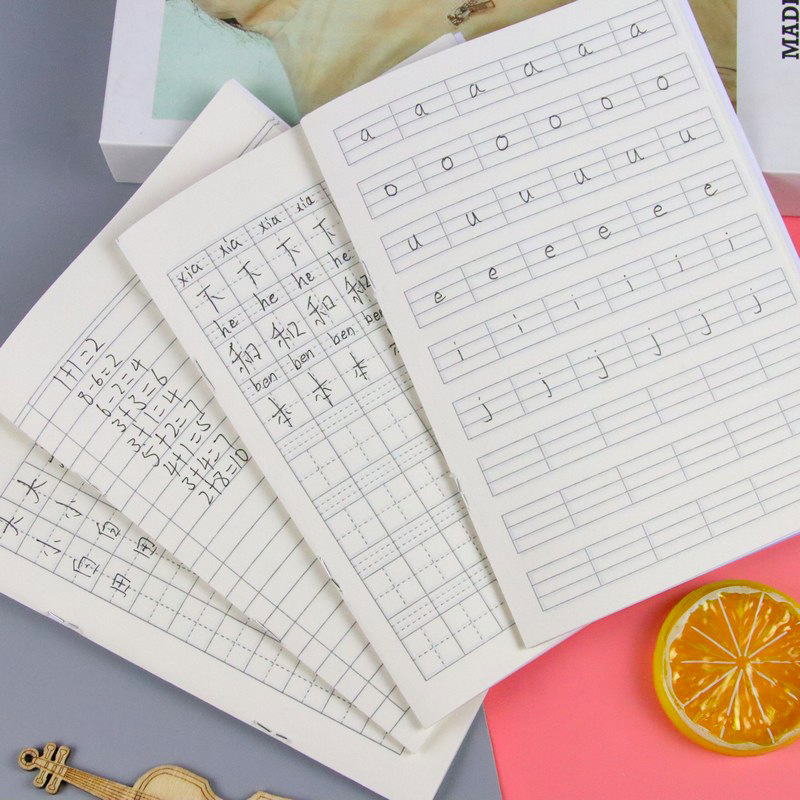 a a a a a a
o o o o o o
u u u u u u
e e e e e e
i i i i i i
j j j j j j
xia xia xia xia
下 下 下 下
he he he he
和 和 和 和
ben ben ben ben
本 本 本
1+1=2
8-6=2
6-2=4
3+3=6
3+1=4
5+2=7
4+1=5
3+4=7
2+8=10
大 小
大 小